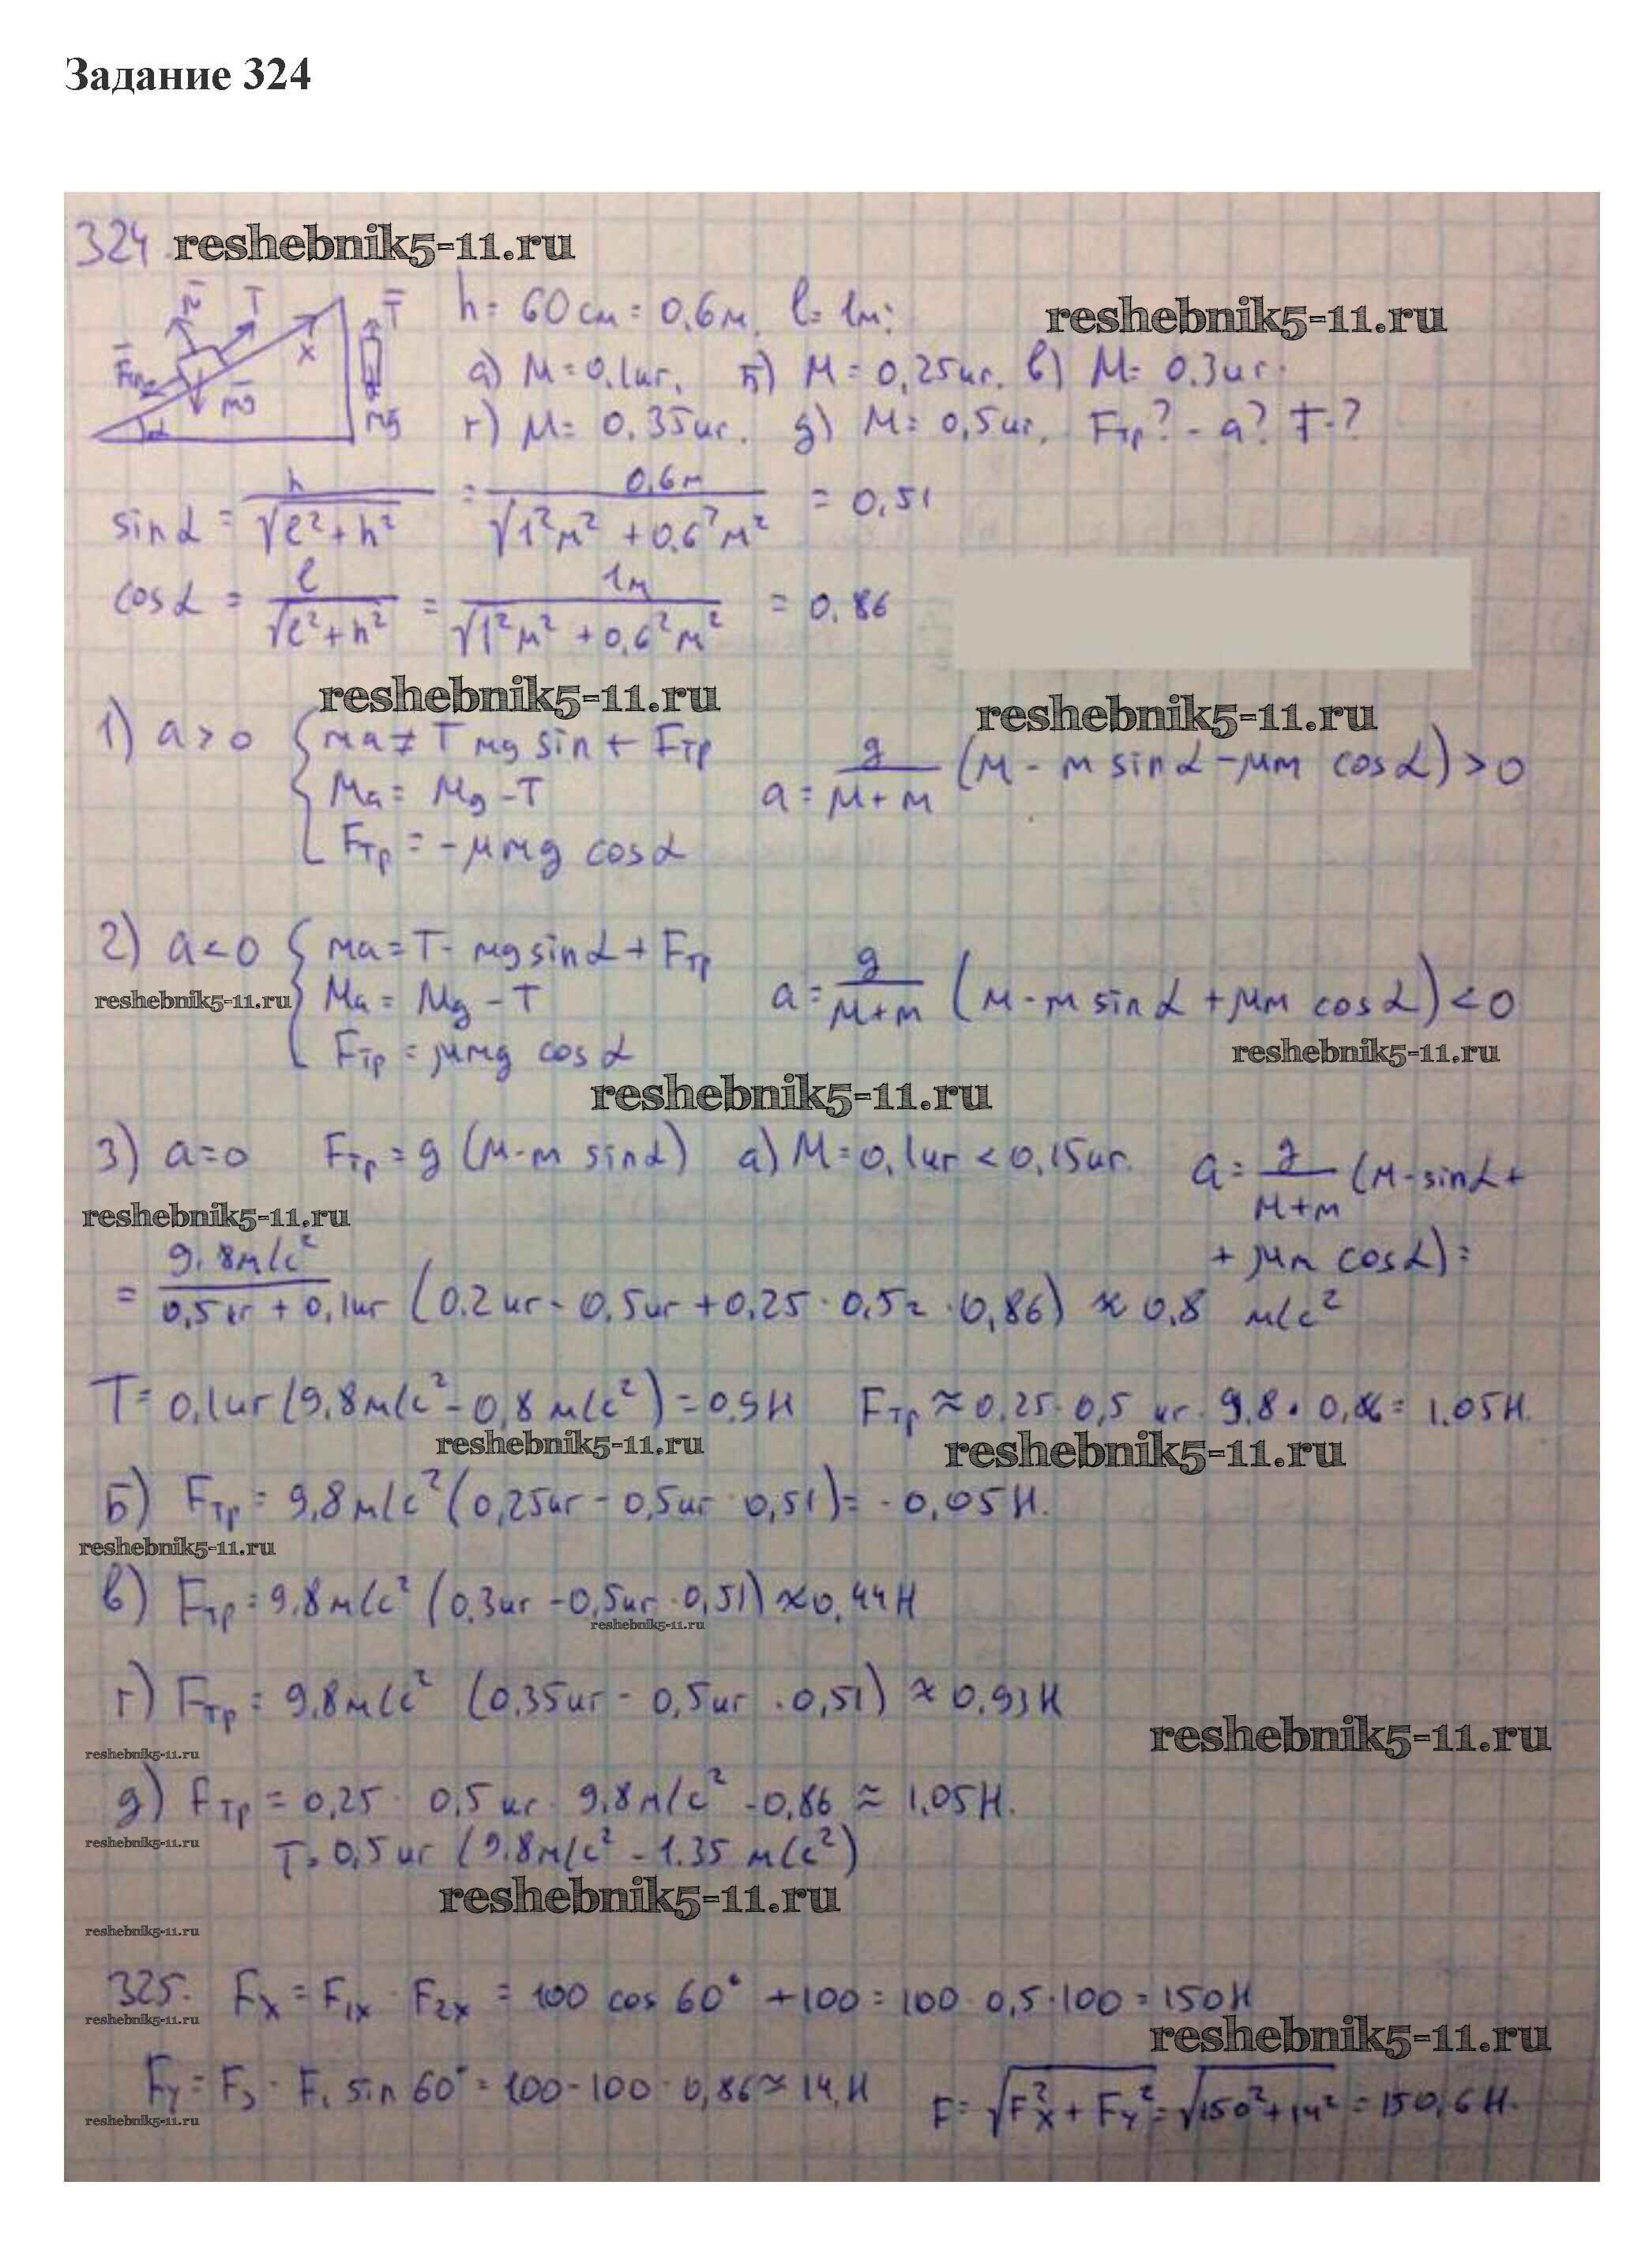 Задание 324
324. reshebnik5-11.ru
N T T
h = 60 см = 0,6 м. l = 1 м;
reshebnik5-11.ru
Fтр mg x Mg α
а) M = 0,1 кг. б) M = 0,25 кг. в) M = 0.3 кг.
г) M = 0,35 кг. д) M = 0,5 кг. Fтр? - a? T-?
sin α = h / √l² + h² = 0,6 м / √1² м² + 0,6² м² = 0,51
cos α = l / √l² + h² = 1 м / √1² м² + 0,6² м² = 0,86
reshebnik5-11.ru
reshebnik5-11.ru
1) a > 0 { ma = T mg sin + Fтр
Ma = Mg - T
a = g / M + m (M - m sin α - μm cos α) > 0
Fтр = - μmg cos α
2) a < 0 { ma = T - mg sin α + Fтр
reshebnik5-11.ru
Ma = Mg - T
a = g / M + m (M - m sin α + μm cos α) < 0
Fтр = μmg cos α
reshebnik5-11.ru
reshebnik5-11.ru
3) a = 0 Fтр = g (M - m sin α) а) M = 0,1 кг < 0,15 кг. a = g / M + m (M - sin α +
reshebnik5-11.ru
+ μm cos α) =
= 9.8 м/с² / 0,5 кг + 0,1 кг (0.2 кг - 0,5 кг + 0,25 · 0,52 · 0,86) ≈ 0,8 м/с²
T = 0,1 кг (9,8 м/с² - 0,8 м/с²) = 0,9 Н Fтр ≈ 0,25 · 0,5 кг · 9,8 · 0,86 = 1.05 Н.
reshebnik5-11.ru
reshebnik5-11.ru
б) Fтр = 9,8 м/с² (0,25 кг - 0,5 кг · 0,51) = - 0,05 Н.
reshebnik5-11.ru
в) Fтр = 9.8 м/с² (0.3 кг - 0,5 кг · 0,51) ≈ 0,44 Н
reshebnik5-11.ru
г) Fтр = 9,8 м/с² (0,35 кг - 0,5 кг · 0,51) ≈ 0,93 Н
reshebnik5-11.ru
reshebnik5-11.ru
д) Fтр = 0,25 · 0,5 кг · 9,8 м/с² - 0,86 ≈ 1,05 Н.
reshebnik5-11.ru
T = 0,5 кг (9.8 м/с² - 1.35 м/с²)
reshebnik5-11.ru
reshebnik5-11.ru
325. Fx = F1x · F2x = 100 cos 60° + 100 = 100 · 0,5 · 100 = 150 Н
reshebnik5-11.ru
reshebnik5-11.ru
Fy = F3 - F1 sin 60° = 100 - 100 · 0,86 ≈ 14 Н F = √Fx² + Fy² = √150² + 14² = 150,6 Н.
reshebnik5-11.ru